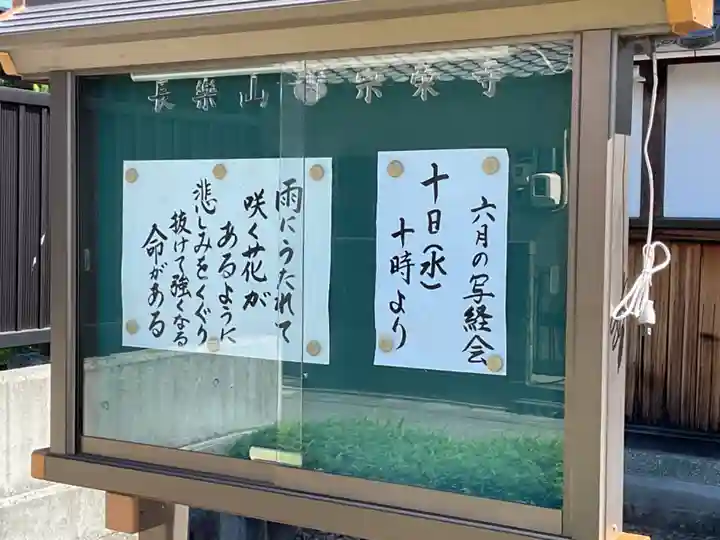 長樂山 宗榮寺
六月の写経会
十日(水)
十時より
雨にうたれて
咲く花が
あるように
悲しみをくぐり
抜けて強くなる
命がある